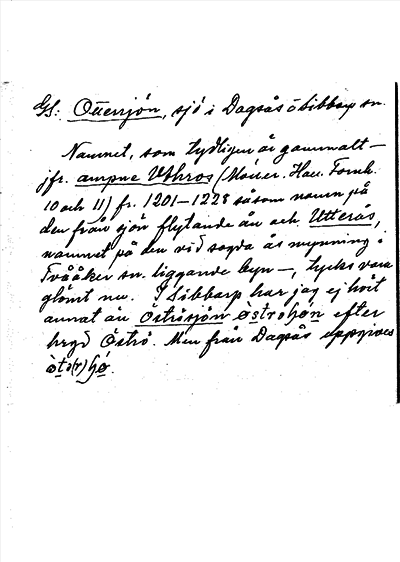 Gs: Ottersjön, sjö i Dagsås o Sibbarp sn.
Namnet, som tydligen är gammalt –
jfr. ampne Vthros (Møller. Hall. Fornh.
10 och 11) fr. 1201–1228 såsom namn på
den från sjön flytande ån och Utterås,
namnet på den vid sagda ås mynning i
Tvååker sn. liggande byn –, tycks vara
glömt nu. I Sibbarp har jag ej hört
annat än Öströsjön östrohön efter
hrgd Öströ. Men från Dagsås uppgives